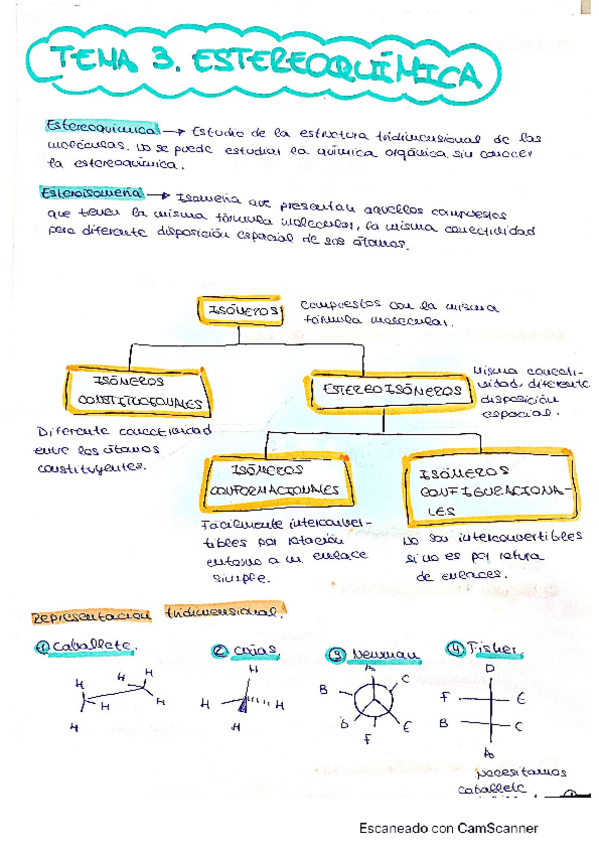 TEMA 3. ESTEREOQUÍMICA
Estereoquímica → Estudio de la estructura tridimensional de las
moléculas. No se puede estudiar la química orgánica sin conocer
la estereoquímica.
Esteroisomería → Isomería que presentan aquellos compuestos
que tienen la misma fórmula molecular, la misma conectividad
pero diferente disposición espacial de sus átomos.
ISÓMEROS
Compuestos con la misma
fórmula molecular.
ISÓMEROS
CONSTITUCIONALES
ESTEREOISÓMEROS
Misma conecti-
vidad, diferente
disposición
espacial.
Diferente conectividad
entre los átomos
constituyentes.
ISÓMEROS
CONFORMACIONALES
ISÓMEROS
CONFIGURACIONA-
LES
Facilmente interconver-
tibles por rotación
entorno a un enlace
simple.
No son interconvertibles
si no es por rotura
de enlaces.
Representación tridimensional.
1 Caballete.
2 Cuñas.
3 Newman
4 Fisher.
H H H H H H
H H H H
A B C D E F
D F E B C A
Necesitamos
caballete
Escaneado con CamScanner